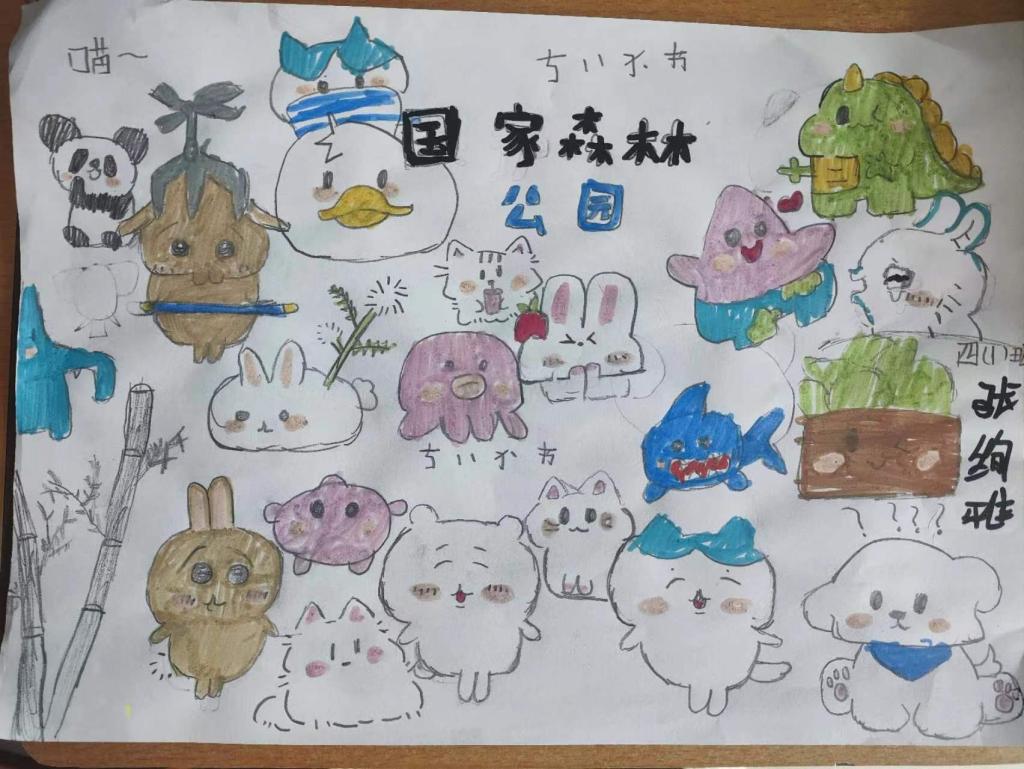 喵~
ちいかわ
国家森林
公园
四川班
张绚雅
ちいかわ
? ? ? ?